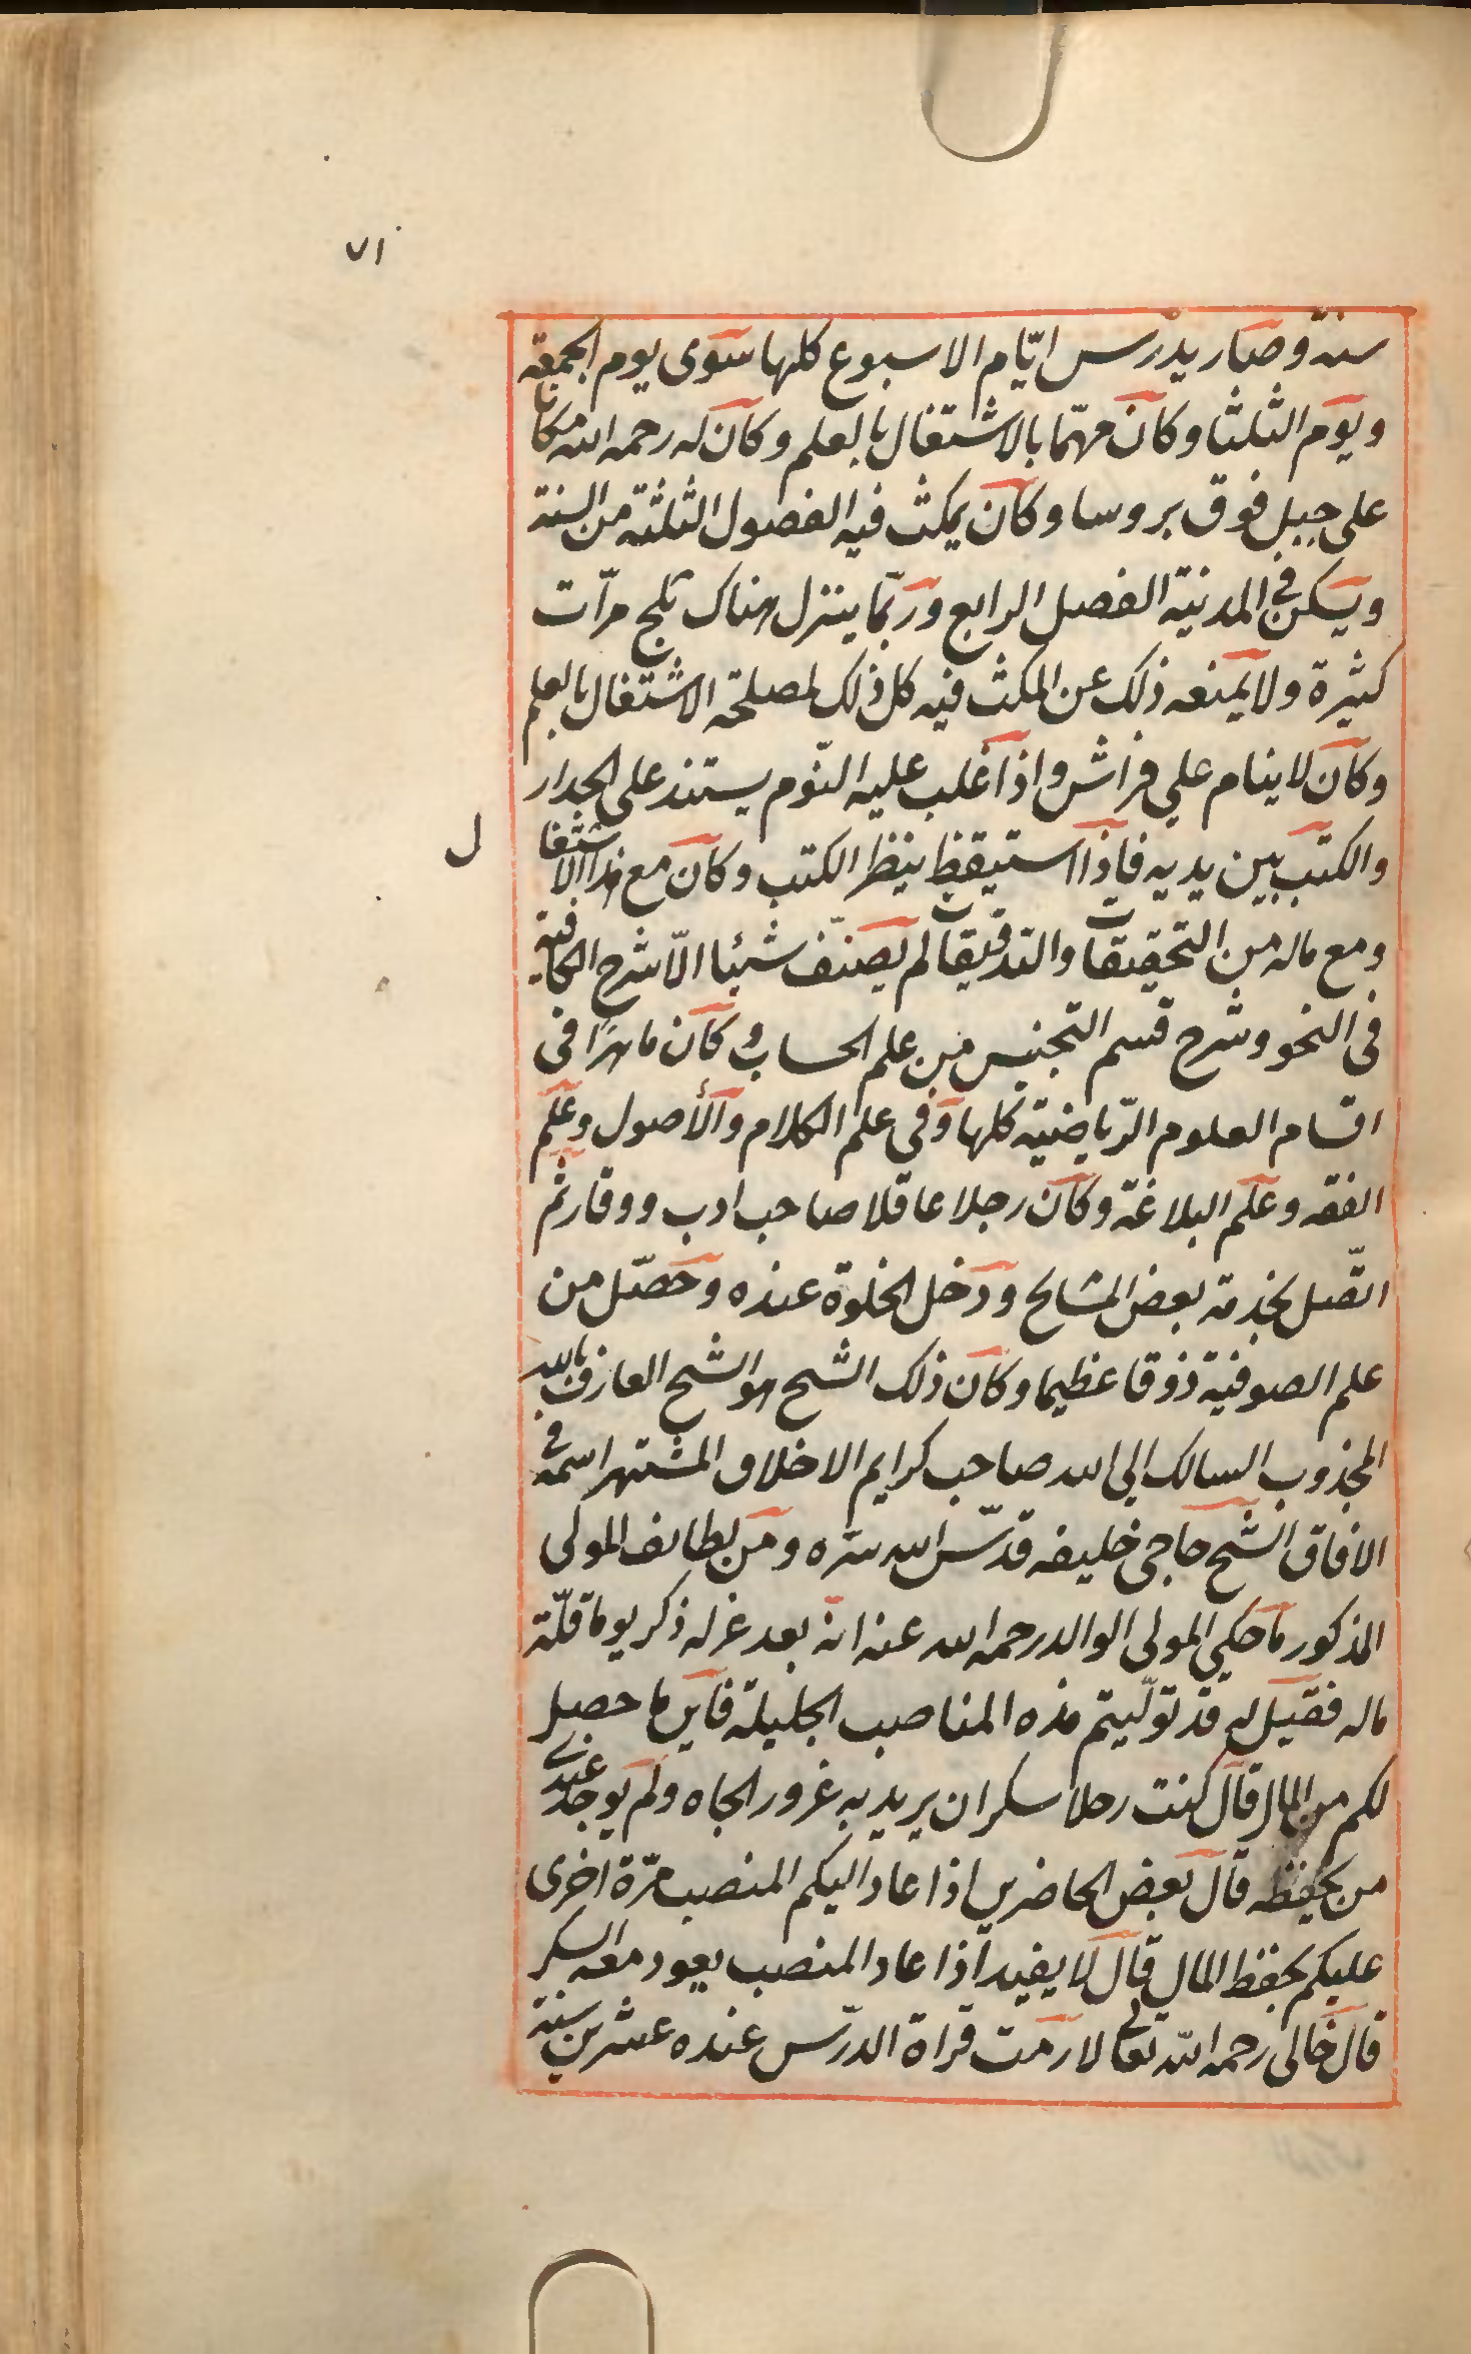 ٧١
سنة وصار يدرس ايّام الاسبوع كلها سوى يوم الجمعة
ويوم الثلثا وكان مهتما بالاشتغال بالعلم وكان له رحمه الله مكانا
على جبل فوق بروسا وكان يمكث فيه الفصول الثلثة من السنة
ويسكن في المدينة الفصل الرابع وربّما ينزل هناك ثلج مرّات
كثيرة ولا يمنعه ذلك عن المكث فيه كل ذلك لمصلحة الاشتغال بالعلم
وكان لا ينام علي فراش واذا غلب عليه النّوم يستند على الجدار
والكتب بين يديه فاذا استيقظ ينظر الكتب وكان مع هذا الاشتغا
ل
ومع ماله من التحقيقات والتدقيقات لم يصنّف شيئا الّا شرح الكافية
في النحو وشرح قسم التجنيس من علم الحساب وكان ماهرًا في
اقسام العلوم الرّياضيّة كلها وفي علم الكلام والأصول وعلم
الفقه وعلم البلاغة وكان رجلا عاقلا صاحب ادب ووقار ثم
اتّصل بخدمة بعض المشايح ودخل الخلوة عنده وحصّل من
علم الصوفية ذوقا عظيما وكان ذلك الشيح هو الشيح العارف بالله
المجذوب السالك الى الله صاحب كرايم الاخلاق المشتهر اسمه في
الافاق الشيح حاجى خليفه قدّس الله سره ومن لطائف المولى
المذكور ما حكي المولى الوالد رحمه الله عنه انه بعد عزله ذكر يوما قلّة
ماله فقيل له قد تولّيتم هذه المناصب الجليلة فاين ما حصل
لكم من المال قال كنت رجلا سكران يريد به غرور الجاه ولم يوجد عندى
من يحفظه قال بعض الحاضرين اذا عاد اليكم المنصب مرّة اخرى
عليكم بحفظ المال قال لا يفيد اذا عاد المنصب يعود معه السكر
قال خالى رحمه الله تعالى لازمت قراة الدرّس عنده عشرين سنة